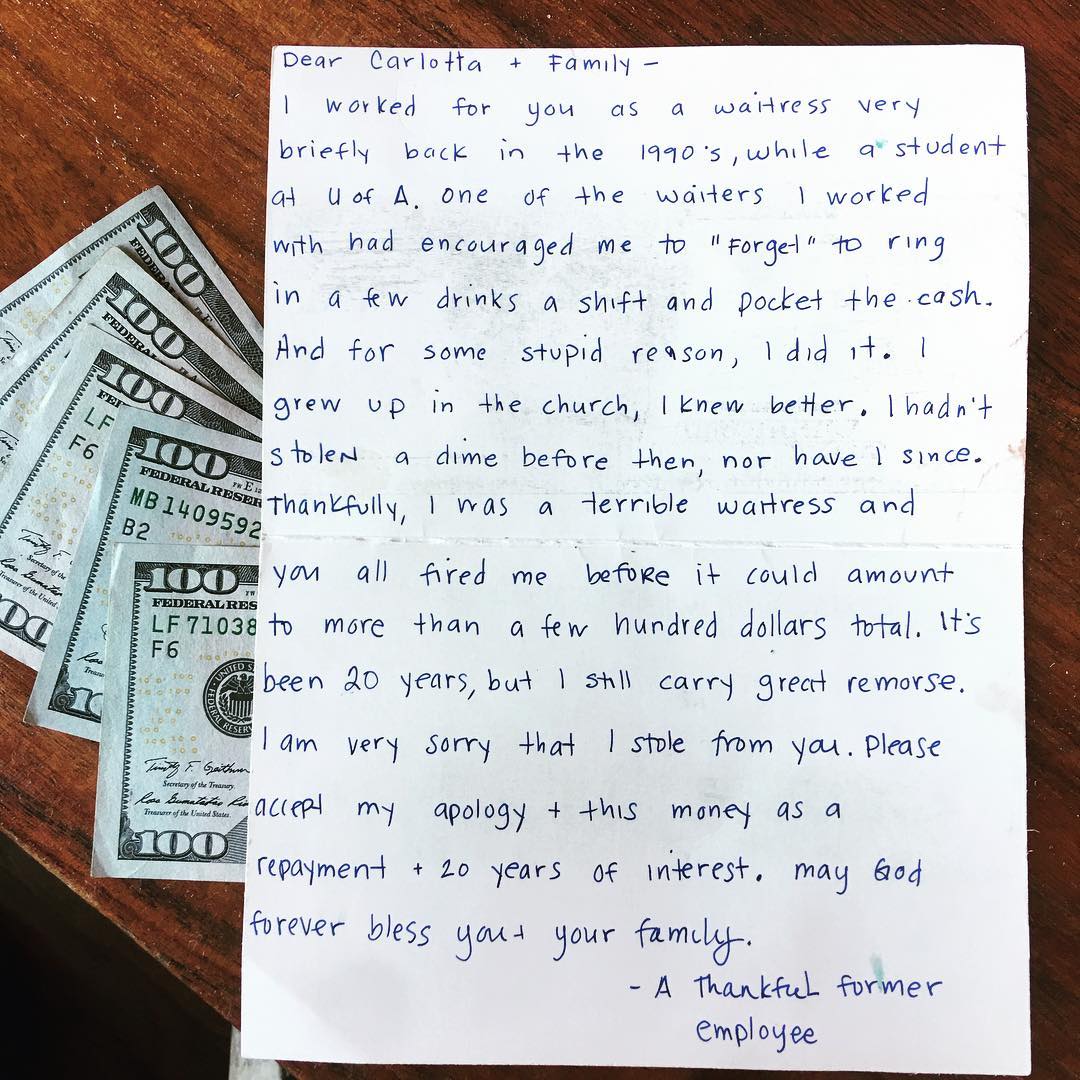 Dear Carlotta + Family –
I worked for you as a waitress very
briefly back in the 1990's, while a student
at U of A. One of the waiters I worked
with had encouraged me to "Forget" to ring
in a few drinks a shift and pocket the cash.
And for some stupid reason, I did it. I
grew up in the church, I knew better. I hadn't
stolen a dime before then, nor have I since.
Thankfully, I was a terrible waitress and
you all fired me before it could amount
to more than a few hundred dollars total. It's
been 20 years, but I still carry great remorse.
I am very sorry that I stole from you. Please
accept my apology + this money as a
repayment + 20 years of interest. may God
forever bless you + your family.
- A Thankful former
employee
100
100
FEDERAL
100
LF
F6
100
FEDERAL RESER
MB1409592
B2
100
FEDERAL RES
LF71038
F6
Secretary of the Treasury.
Treasurer of the United States.
100